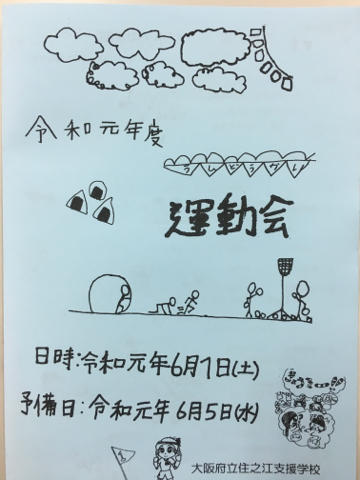 令和元年度
運動会
日時:令和元年6月1日(土)
予備日:令和元年6月5日(水)
1
大阪府立住之江支援学校